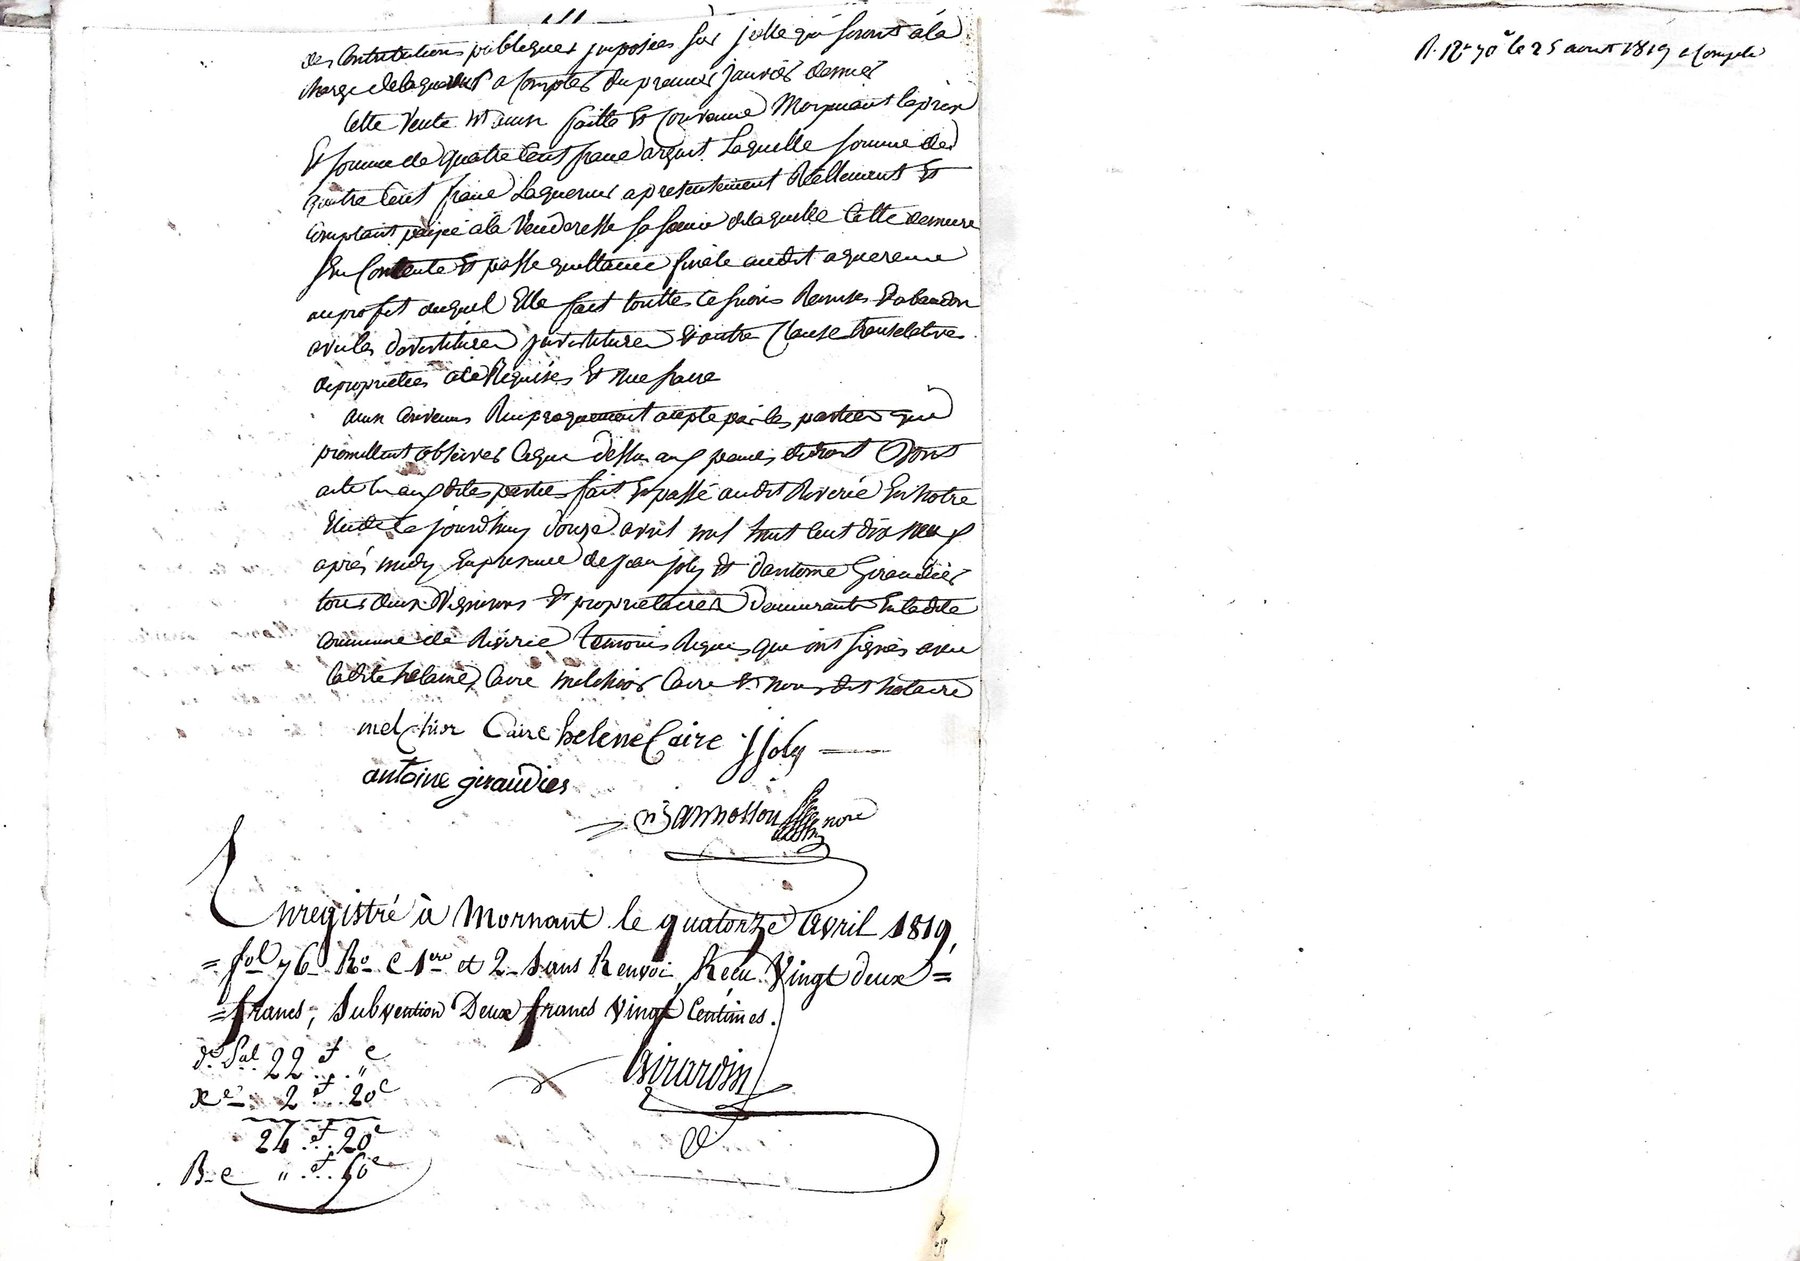 des Contributions publiques imposées sur jcelle qui seront ala
charge delaquereur a Compter du premier janvier dernier
Cette Vente est aussi faitte Et Convenue Moyenant leprix
Et somme de quatre Cent franc argent Laquelle somme de
quatre Cent franc Laquereur apresentement Reellement Et
Comptant payée ala Venderesse sa soeur delaquelle Cette demeure
En Contente Et passe quittance finale audit aquereur
auprofit duquel Elle fait touttes Cessions Remises Et abandon
avec les devestiture jnvestiture Et autre Clause translatives
depropriettées ace Requises Et necessaire
ainsi Convenus Reciproquement accepte par les parties qui
promettent observer Ceque dessus aux peines dedroit Dont
acte lu aux dites parties fait Et passé audit Riverie En notre
Etude Ce jourdhuy douze avril mil huit Cent dix neuf
après midy En presence de Jean joly Et dantoine Giraudier
tous deux Vignerons Et proprietaires demeurants En ladite
Commune de Riverie temoins Requis qui ont signés avec
ladite helaine Caire melchior Caire Et nous dit notaire
melchior Caire helene Caire J Joly
antoine giraudier
Bannosson nore
Enregistré à Mornant le quatorze avril 1819,
= fol 76 Ro C 1ere et 2 Sans Renvoi, Recu Vingt deux =
= francs, Subvention Deux francs Vingt Centimes.
22 f " c
2 f 20 c
Girardin
24 f 20 c
" f 50 c
le 25 aout 1819